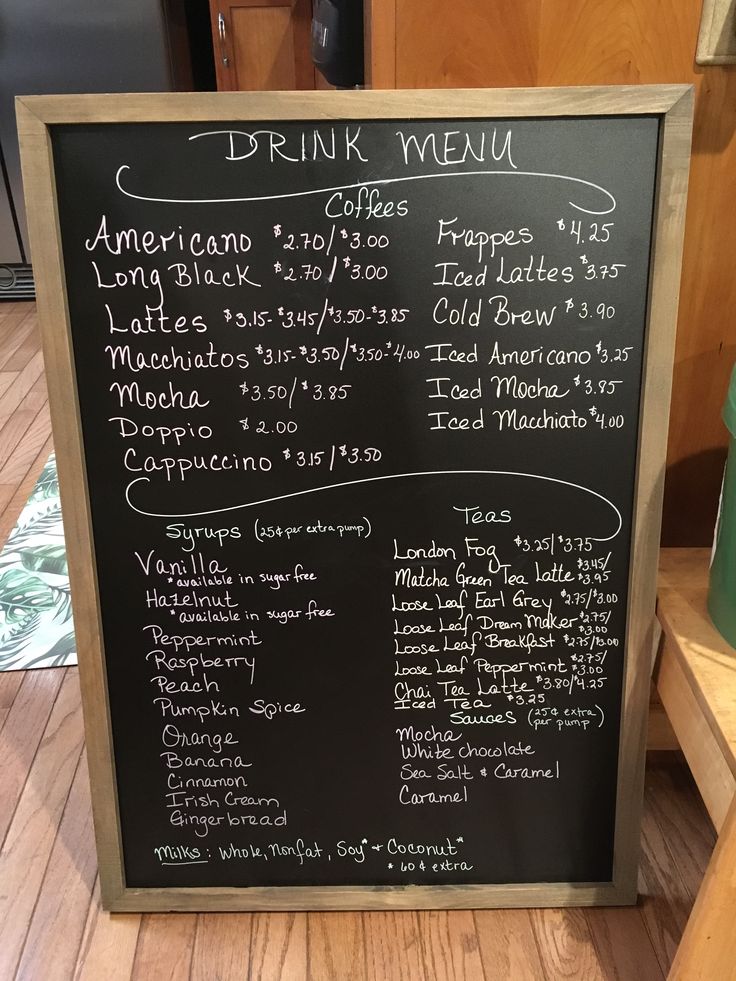 DRINK MENU
Coffees
Americano $2.70/$3.00
Long Black $2.70/$3.00
Lattes $3.15-$3.45/$3.50-$3.85
Macchiatos $3.15-$3.50/$3.50-$4.00
Mocha $3.50/$3.85
Doppio $2.00
Cappuccino $3.15/$3.50
Frappes $4.25
Iced Lattes $3.75
Cold Brew $3.90
Iced Americano $3.25
Iced Mocha $3.85
Iced Macchiato $4.00
Syrups (25¢ per extra pump)
Vanilla
*available in sugar free
Hazelnut
*available in sugar free
Peppermint
Raspberry
Peach
Pumpkin Spice
Orange
Banana
Cinnamon
Irish Cream
Gingerbread
Teas
London Fog $3.25/$3.75
Matcha Green Tea Latte $3.45/$3.95
Loose Leaf Earl Grey $2.75/$3.00
Loose Leaf Dream Maker $2.75/$3.00
Loose Leaf Breakfast $2.75/$3.00
Loose Leaf Peppermint $2.75/$3.00
Chai Tea Latte $3.80/$4.25
Iced Tea $3.25
Sauces (25¢ extra per pump)
Mocha
White chocolate
Sea Salt & Caramel
Caramel
Milks: Whole, Nonfat, Soy* + Coconut*
* 60¢ extra